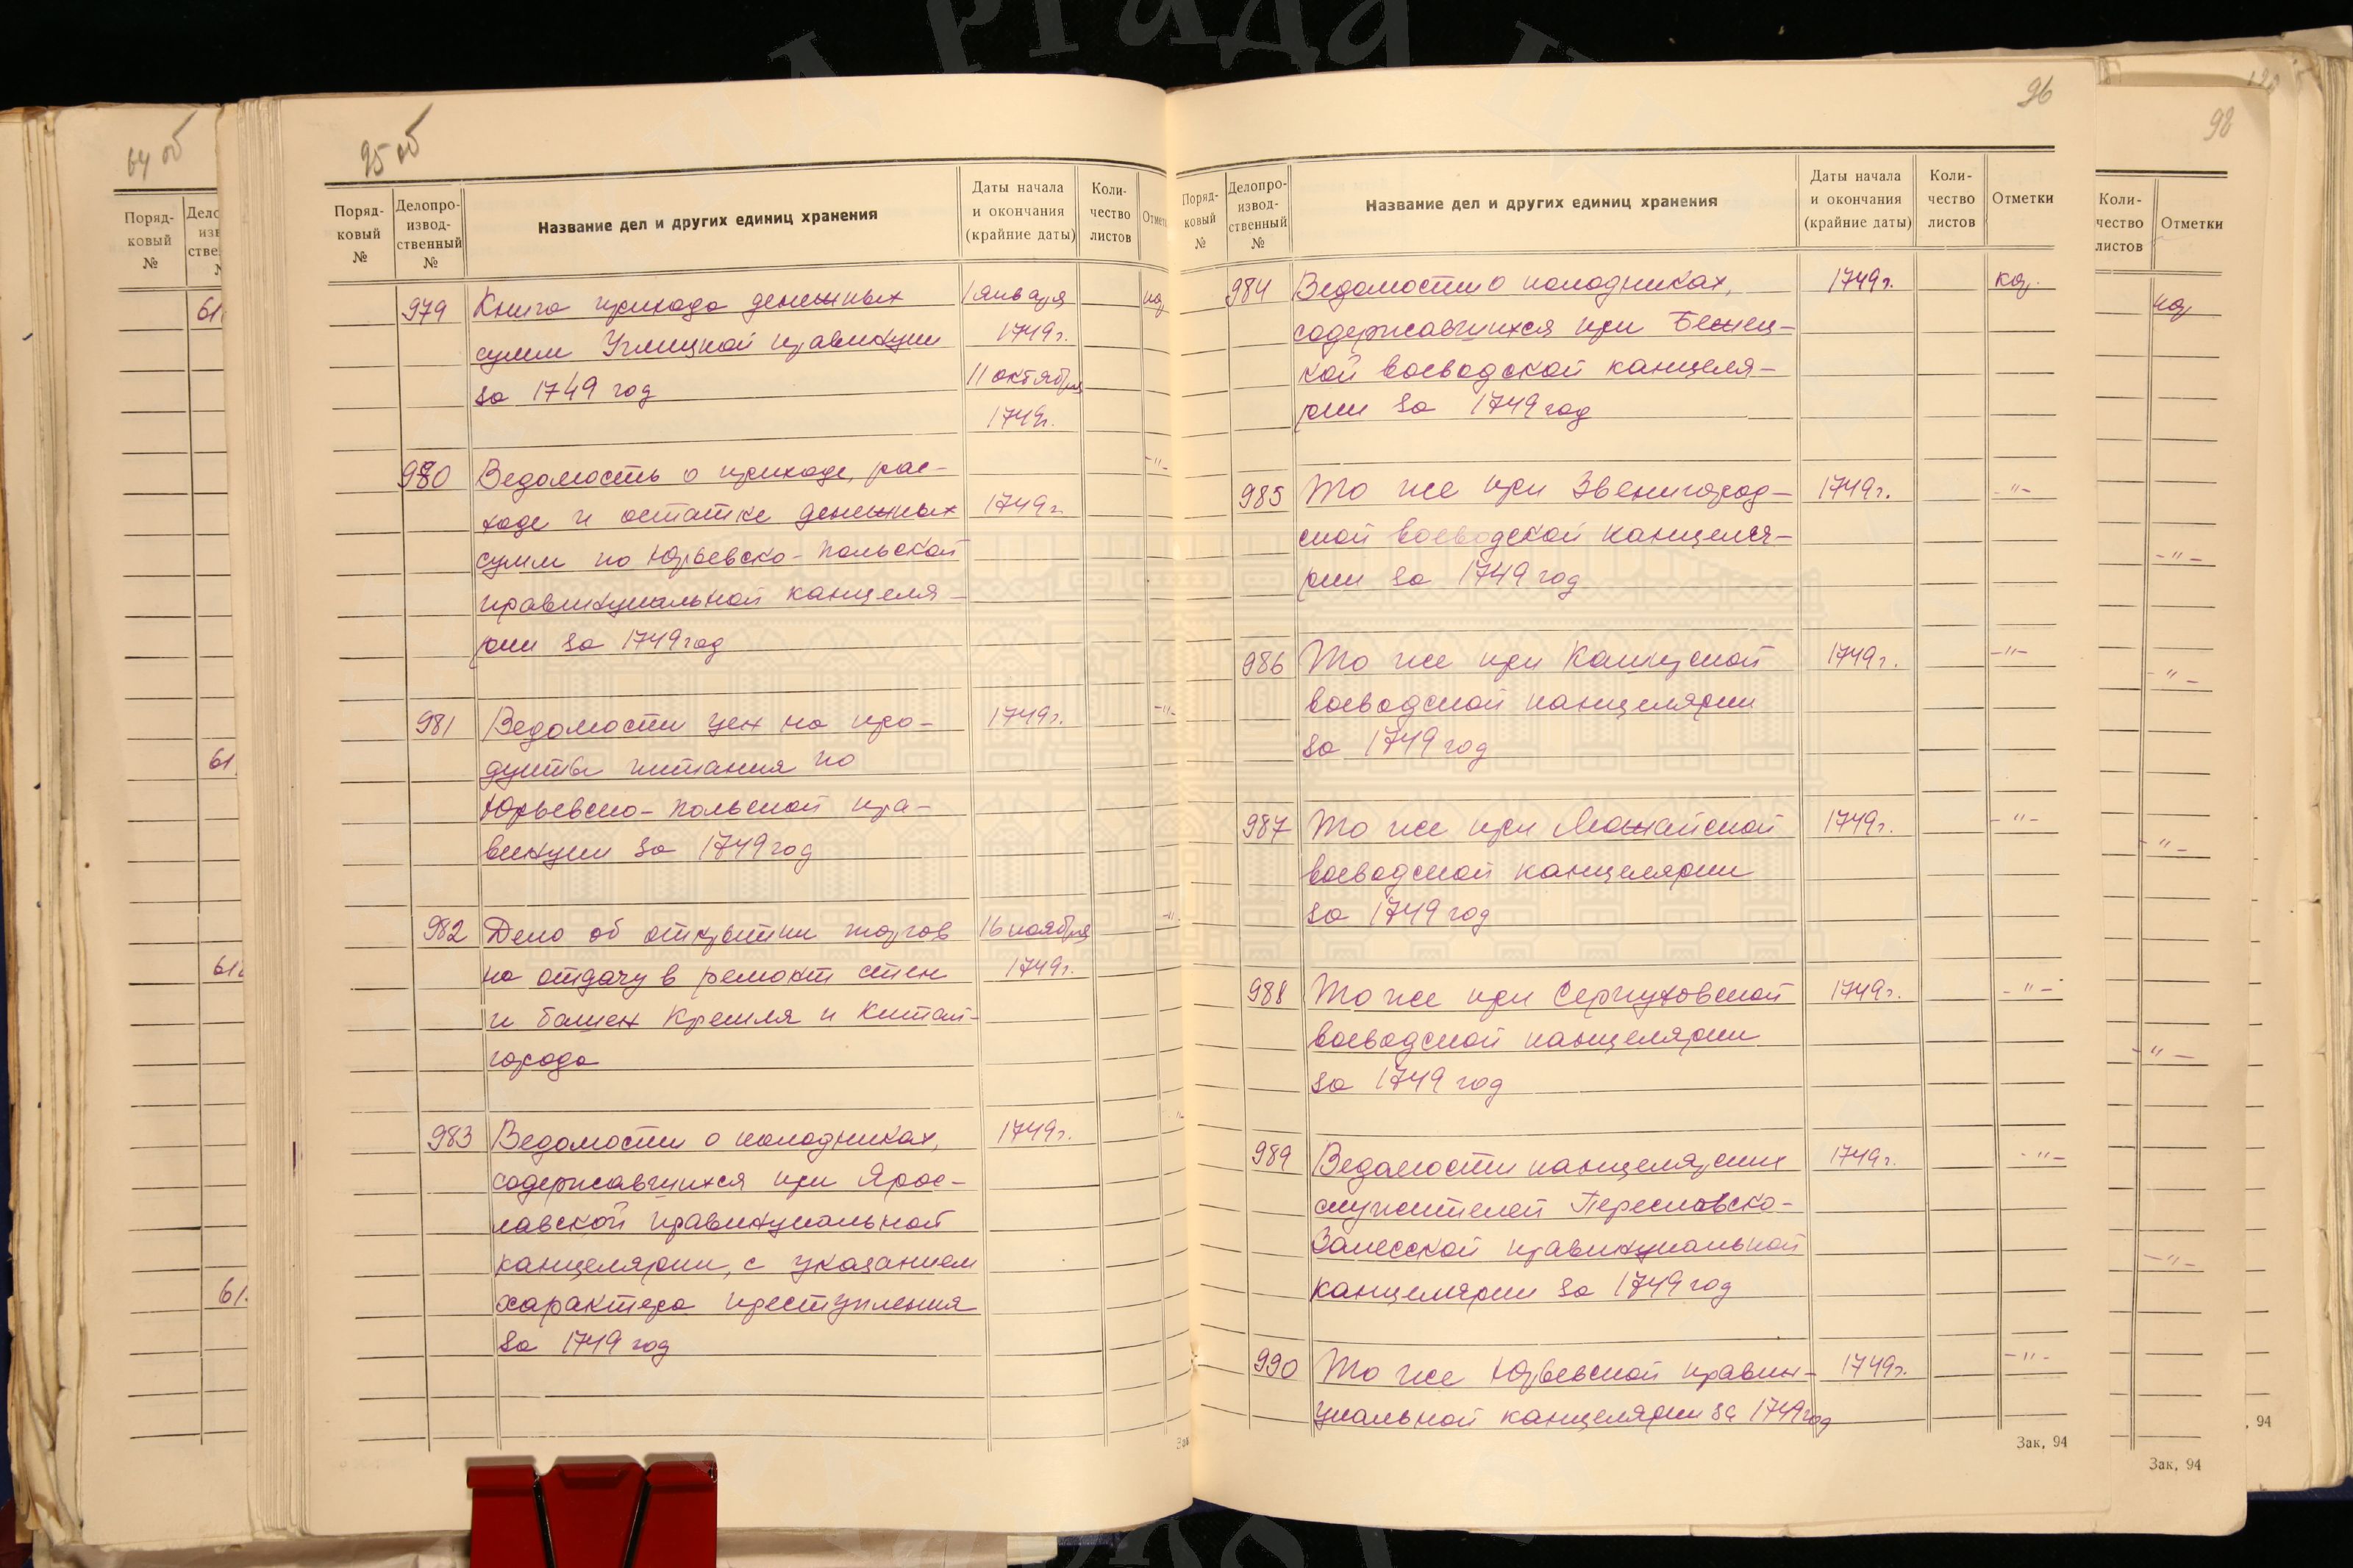 95 об
Поряд-
ковый
№
Делопро-
извод-
ственный
№
Название дел и других единиц хранения
Даты начала
и окончания
(крайние даты)
Коли-
чество
листов
979 Книга прихода денежных 1 января
сумм Углицкой провинции 1749 г.
за 1749 год 11 октября
1749 г.
980 Ведомость о приходе, рас- -"-
ходе и остатке денежных 1749 г.
сумм по Юрьевско-Польской
провинциальной канцеля-
рии за 1749 год
981 Ведомости цен на про- 1749 г. -"-
дукты питания по
Юрьевско-Польской про-
винции за 1749 год
982 Дело об открытии торгов 16 ноября -"-
на отдачу в ремонт стен 1749 г.
и башен Кремля и Китай-
города
983 Ведомости о колодниках, 1749 г. "
содержавшихся при Ярос-
лавской провинциальной
канцелярии, с указанием
характера преступления
за 1749 год
96
Поряд-
ковый
№
Делопро-
извод-
ственный
№
Название дел и других единиц хранения
Даты начала
и окончания
(крайние даты)
Коли-
чество
листов
Отметки
984 Ведомости о колодниках, 1749 г.
содержавшихся при Бежец-
кой воеводской канцеля-
рии за 1749 год
985 То же при Звенигород- 1749 г. -"-
ской воеводской канцеля-
рии за 1749 год
986 То же при Каширской 1749 г. -"-
воеводской канцелярии
за 1749 год
987 То же при Можайской 1749 г. -"-
воеводской канцелярии
за 1749 год
988 То же при Серпуховской 1749 г. -"-
воеводской канцелярии
за 1749 год
989 Ведомости канцелярских 1749 г. -"-
служителей Переславско-
Залесской провинциальной
канцелярии за 1749 год
990 То же Юрьевской провин- 1749 г. -"-
циальной канцелярии за 1749 год
Зак. 94
64 об
Поряд-
ковый
№
98
Коли-
чество
листов
Отметки
-"-
-"-
-"-
-"-
-"-
Зак. 94
94